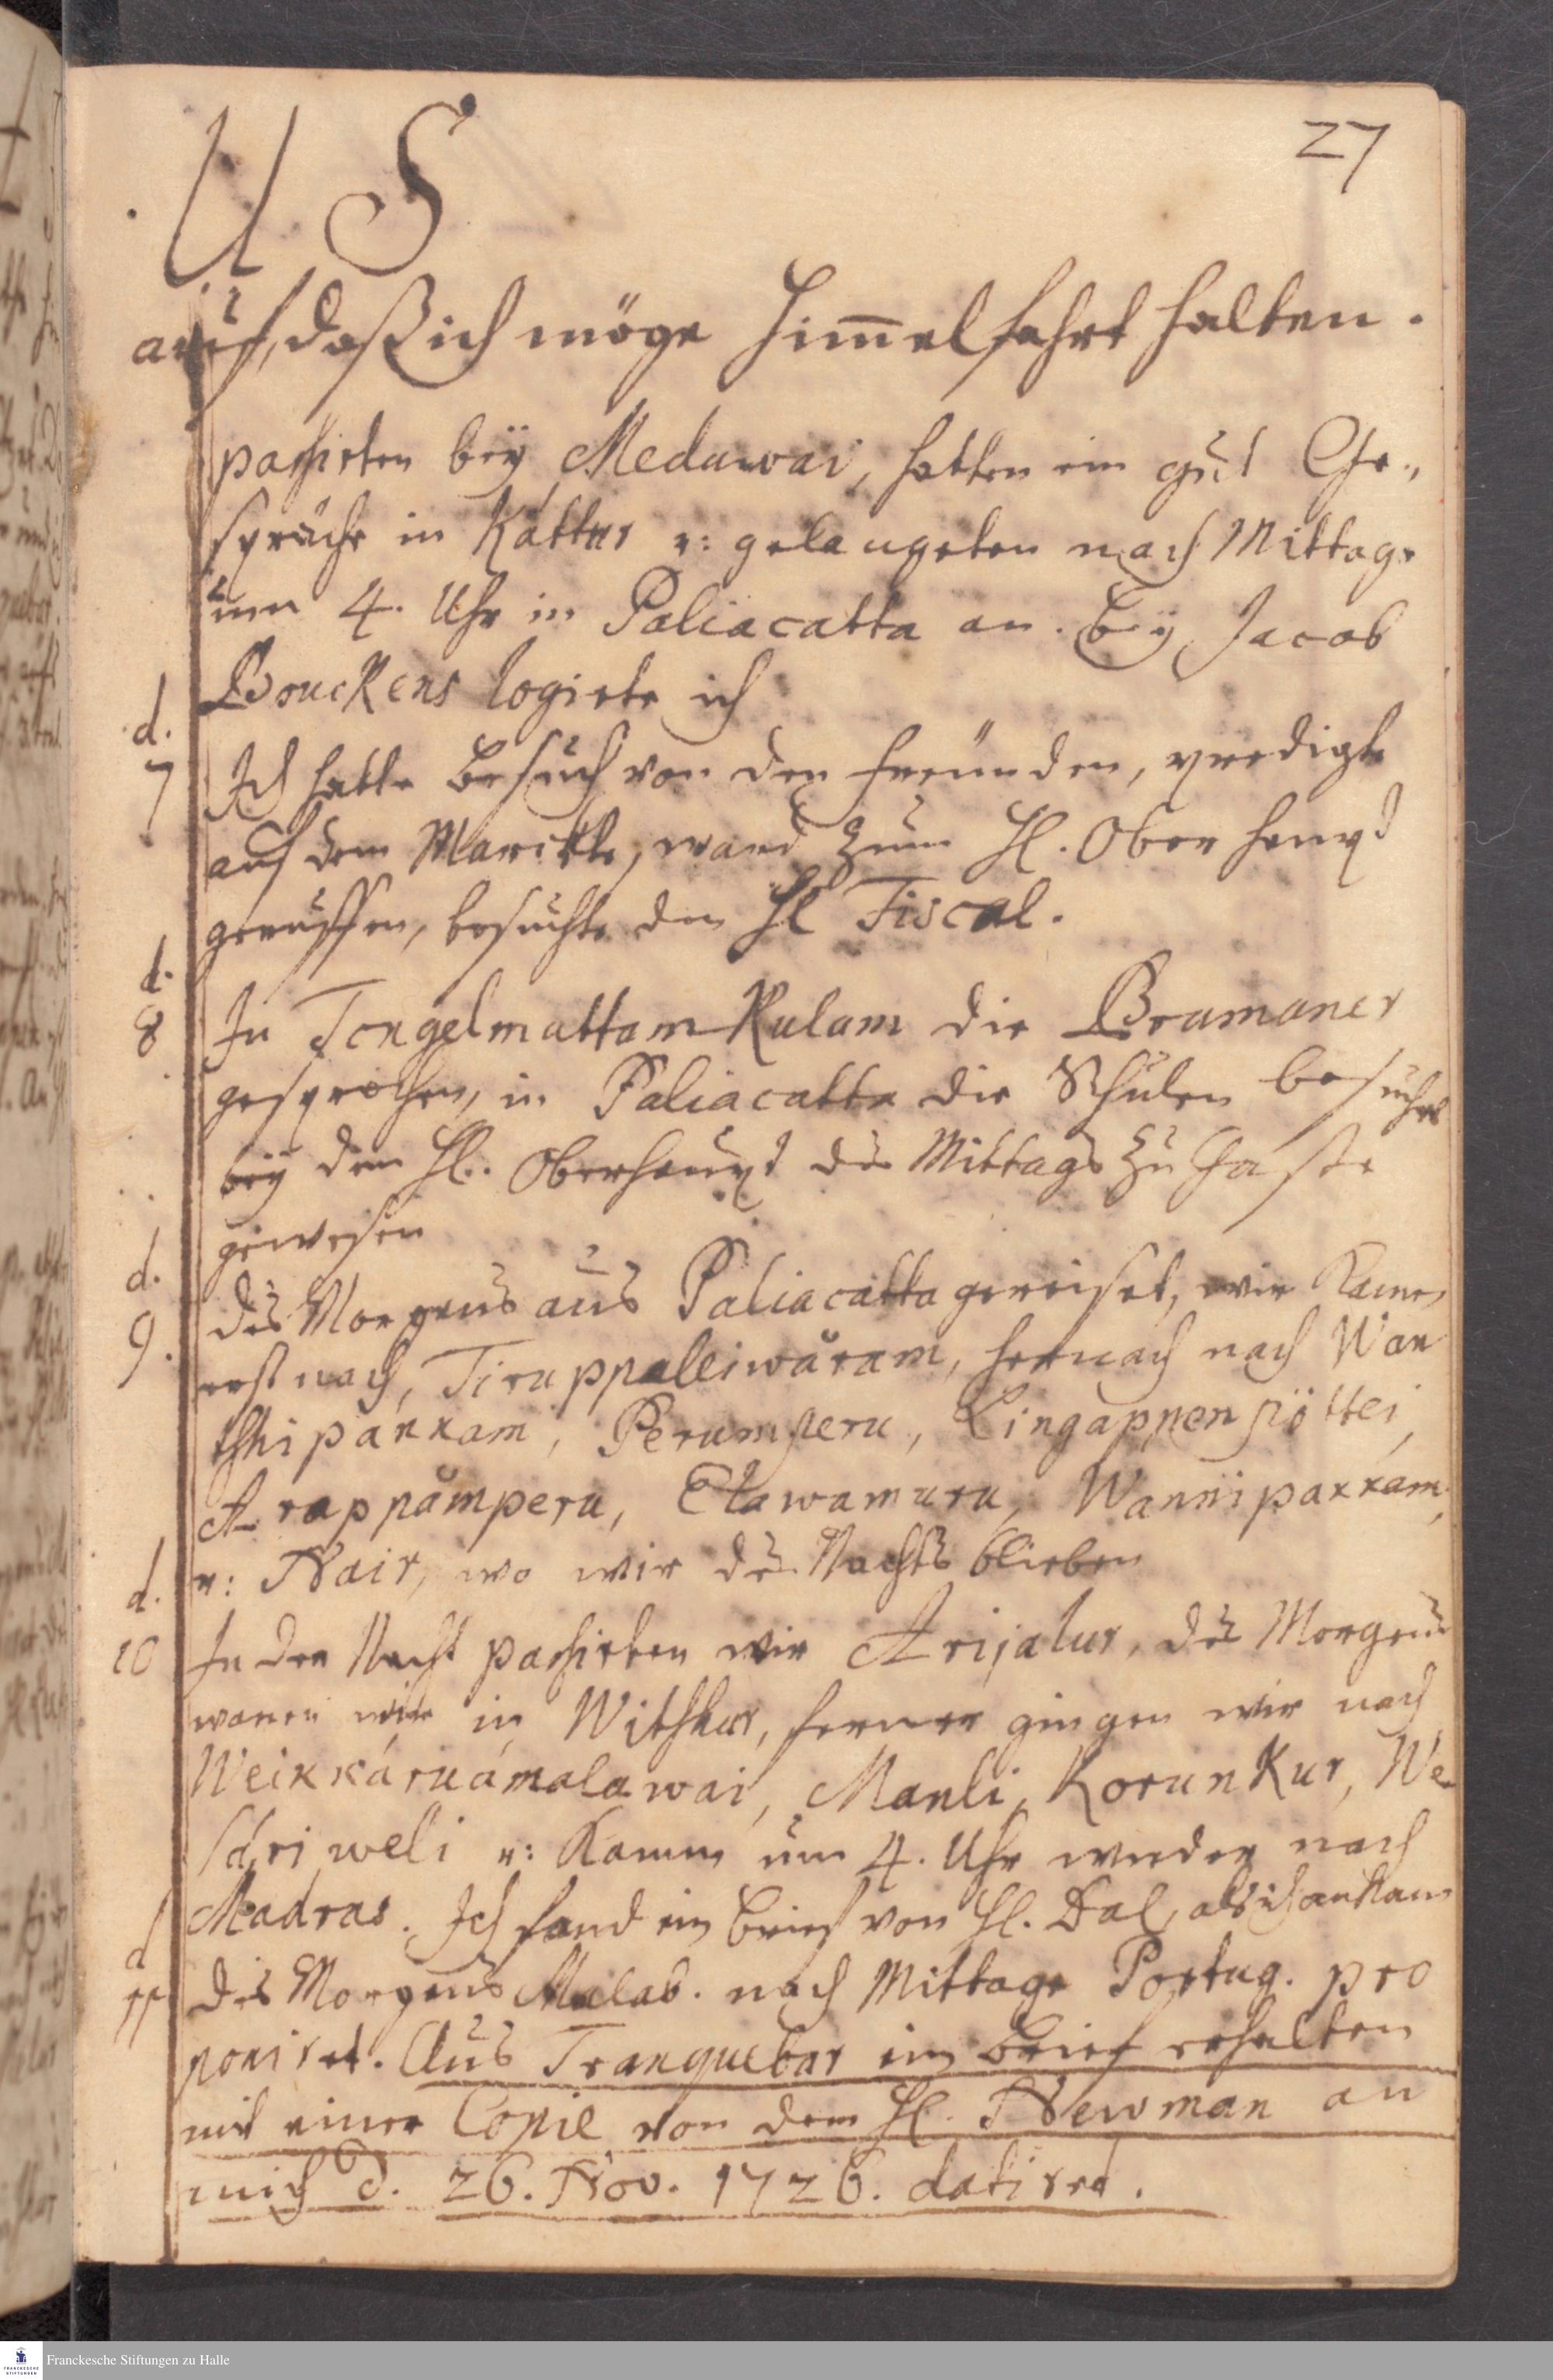 27
U S
auf, daß ich möge Him̅elfahrt halten.
passirten beÿ Meduwai, hatten ein gut Ge„
spräche in Kåttur u: gelangeten nach Mittage
um 4. Uhr in Paliacatta an. Beÿ Jacob
Bouckens logirte ich
d. 7 Ich hatte Besuch von den Freunden, predigte
auf dem Marckte, ward zum H. Ober haupt
geruffen, besuchte den H Fiscal.
d. 8 In Tengelmattam Kulam die Bramaner
gesprochen, in Paliacatta die Schulen besuchet
beÿ dem H. Oberhaupt des Mittags zu Gaste
gewesen
d. 9. des Morgens aus Paliacatta gereiset, wir kamen
erst nach, Tiruppaleiwåram, hernach nach Wan
tshipákkam, Perumperu, Lingappenpöttei,
Arappåmperu, Elawamuru, Wannipakkam,
u: Nair, wo wir des Nachts blieben
d. 10 In der Nacht passirten wir Arijalur, des Morgens
waren wir in Witshur, ferner gingen wir nach
Weikkáruámalawai, Manli, Korunkur, We
sári weli u: kamen um 4. Uhr wieder nach
Madras. Ich fand ein Brief von H. Dal, als ich ankam
d 11 des Morgens Malab. nach Mittage Portug. pro
poniret. Aus Tranquebar ein Brief erhalten
mit einer Copie von dem H. Newman an
mich d. 26. Nov. 1726. datiret.
Franckesche Stiftungen zu Halle